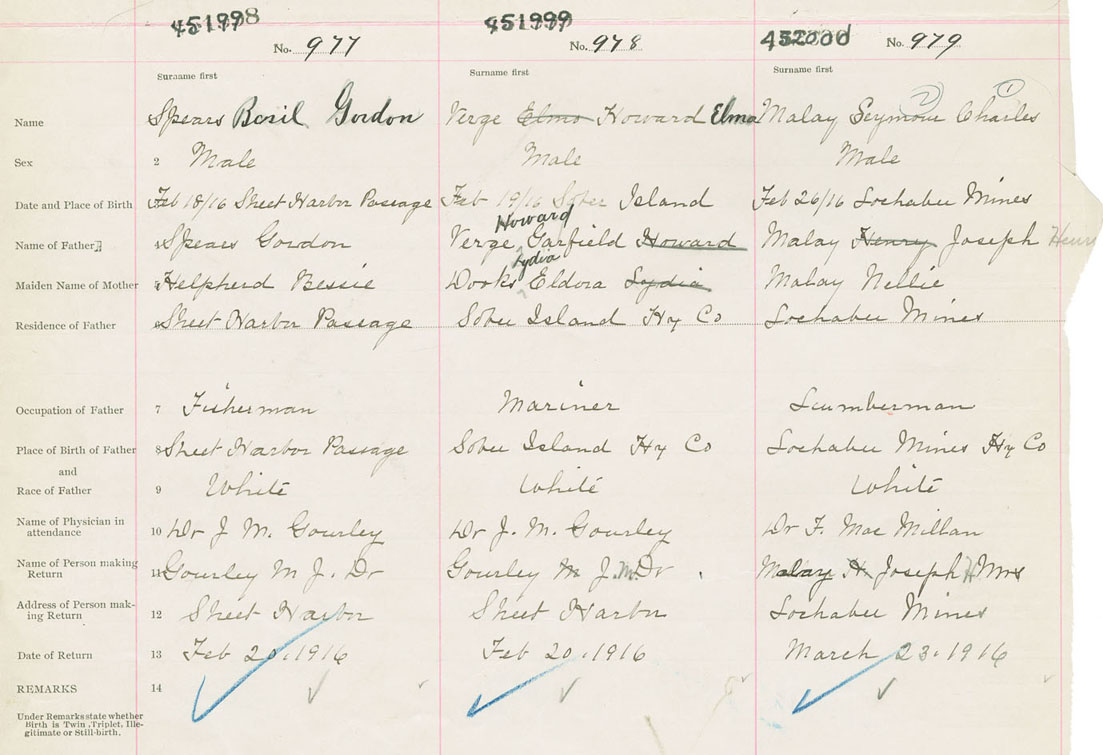 451998 451999 452000
No. 977 No. 978 No. 979
Surname first Surname first Surname first
Name Spears Basil Gordon Verge Elmo Howard Elma Malay Seymour Charles 2 1
Sex 2 Male Male Male
Date and Place of Birth Feb 18/16 Sheet Harbor Passage Feb 19/16 Sober Island Feb 26/16 Lochaber Mines
Howard
Name of Father 4 Spears Gordon Verge Garfield Howard Malay Henry Joseph Henry
Lydia
Maiden Name of Mother Helpherd Bessie Dooks Eldora Lydia Malay Nellie
Residence of Father Sheet Harbor Passage Sober Island Hx Co Lochaber Mines
Occupation of Father 7 Fisherman Mariner Lumberman
Place of Birth of Father 8 Sheet Harbor Passage Sober Island Hx Co Lochaber Mines Hx Co
and
Race of Father 9 White White White
Name of Physician in
attendance 10 Dr J. M. Gourley Dr J. M. Gourley Dr F. Mac Millan
Name of Person making
Return 11 Gourley M J. Dr Gourley M J. M. Dr Malay H Joseph H Mrs
Address of Person mak-
ing Return 12 Sheet Harbor Sheet Harbor Lochaber Mines
Date of Return 13 Feb 20, 1916 Feb 20, 1916 March 23, 1916
REMARKS 14
Under Remarks state whether
Birth is Twin, Triplet, Ille-
gitimate or Still-birth.